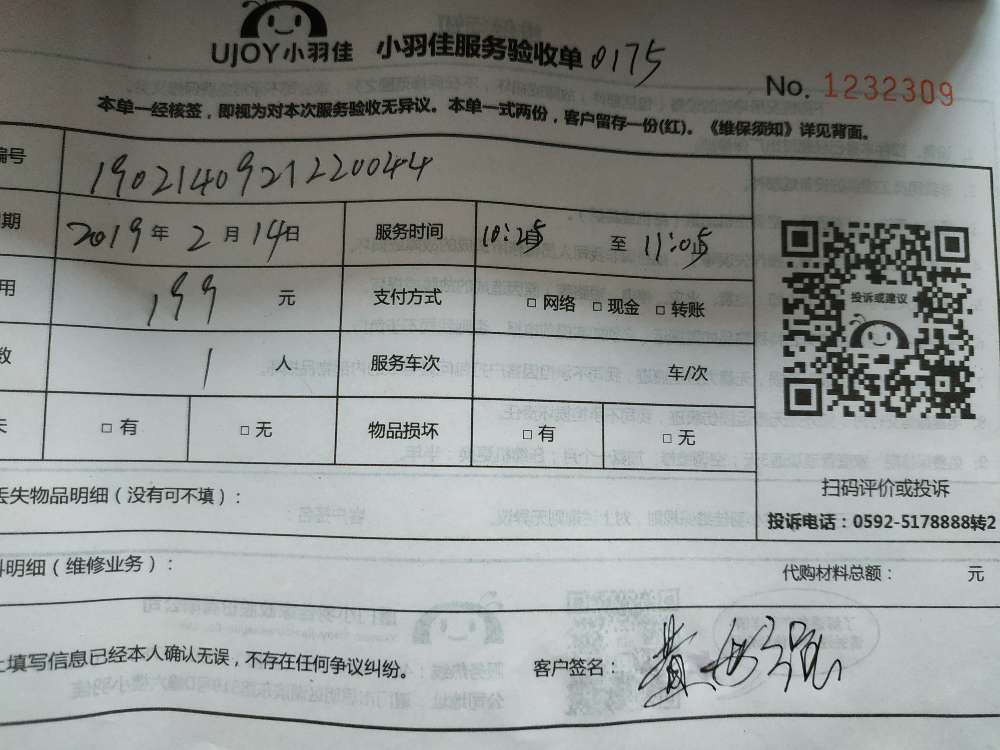 UJOY小羽佳 小羽佳服务验收单 0175
No. 1232309
本单一经核签，即视为对本次服务验收无异议。本单一式两份，客户留存一份(红)。《维保须知》详见背面。
编号 19021409212220044
期 2019年 2月 14日 服务时间 10:25 至 11:05
用 199 元 支付方式 □ 网络 □ 现金 □ 转账
数 1 人 服务车次 车/次
失 □ 有 □ 无 物品损坏 □ 有 □ 无
投诉或建议
扫码评价或投诉
投诉电话：0592-5178888转2
丢失物品明细（没有可不填）：
料明细（维修业务）： 代购材料总额： 元
上填写信息已经本人确认无误，不存在任何争议纠纷。 客户签名：